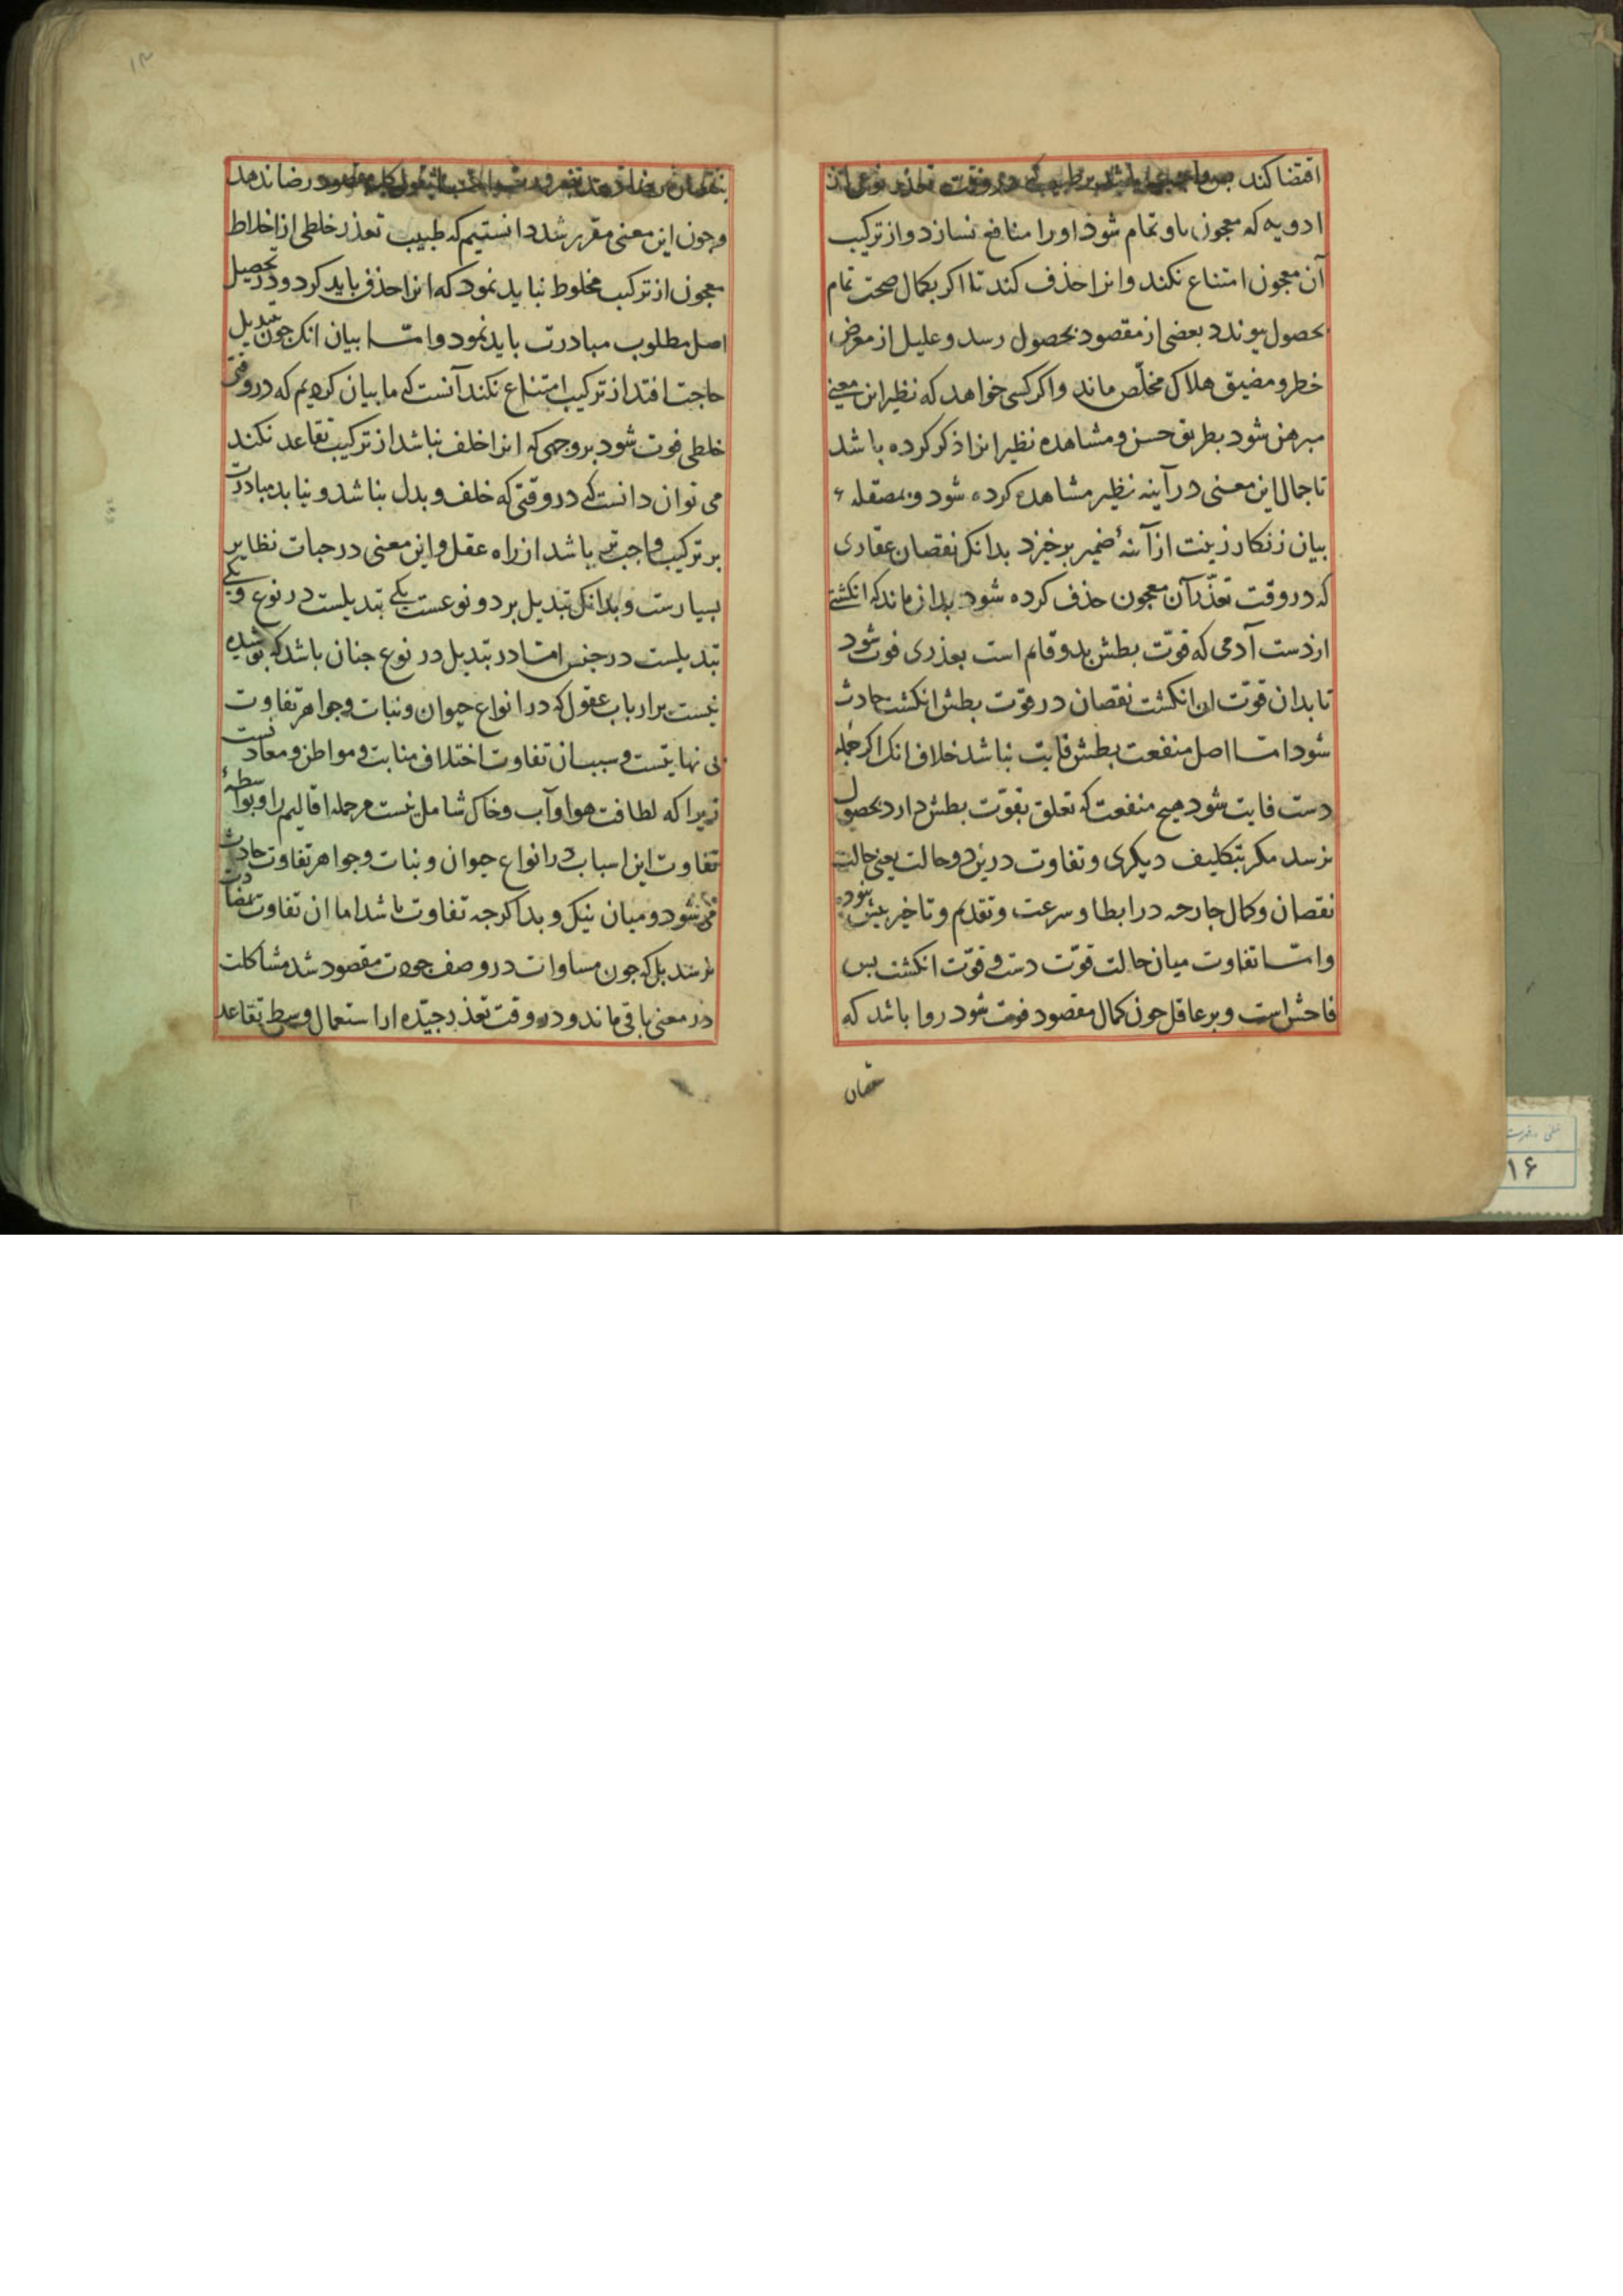 اقتضا کند پس واجب باشد بر طبیب که در وقت تعذر نوعی از
ادویه که معجون باو تمام شود او را منافع نسازد و از ترکیب
آن معجون امتناع نکند و انرا حذف کند تا اکر بکمال صحت تمام
بحصول نپوندد بعضی از مقصود بحصول رسد و علیل از معرض
خطر و مضیق هلاک مخلّص ماند و اکر کسی خواهد که نظیر این معنی
مبرهن شود بطریق حسن و مشاهده نظیر انرا ذکر کرده باشد
تا جمال این معنی در آینه نظیر مشاهده کرده شود و بمصقله
بیان زنکار زینت از آینهٔ ضمیر برخیزد بدانک نقصان عقاری
که در وقت تعذّر آن معجون حذف کرده شود بدان ماند که انکشتی
از دست آدمی که قوّت بطش بدو قایم است بعذری فوت شود
تا بدان قوّت ان انکشت نقصان در قوّت بطش انکشت حادث
شود امّا اصل منفعت بطش فایت نباشد خلاف انک اکر جمله
دست فایت شود هیچ منفعت که تعلق بقوّت بطش دارد بحصول
نرسد مکر بتکلیف دیکری و تفاوت درین دو حالت یعنی حالت
نقصان و کمال جارحه در ابطا و سرعت و تقدیم و تاخیر بیش نبوده
وامّا تفاوت میان حالت قوّت دست و قوّت انکشت بس
فاحش است و بر عاقل جون کمال مقصود فوت شود روا باشد که
نقصان
۱۳
در رضا ندهد
و جون این معنی مقرر شد دانستیم که طبیب تعذر خلطی از اخلاط
معجون از ترکیب مخلوط نباید نمود که انرا حذف باید کرد و در تحصیل
اصل مطلوب مبادرت باید نمود وامّا بیان انک جون تبدیل
حاجت افتد از ترکیب امتناع نکند آنست که ما بیان کردیم که در وقتی
خلطی فوت شود بر وجهی که انرا خلف نباشد از ترکیب تقاعد نکند
می توان دانست که در وقتی که خلف و بدل بباشد و نیابد مبادرت
بر ترکیب واجب تر باشد از راه عقل و این معنی در جبات نظایر
بسیارست و بدانک تبدیل بر دو نوعست یکی تبدیلست در نوع و یکی
تبدیلست در جنس امّا در تبدیل در نوع جنان باشد که پوشیده
نیست بر ارباب عقول که در انواع حیوان و نبات و جواهر تفاوت
بی نهایتست و سبب ان تفاوت اختلاف منابت و مواطن و معادنست
زیرا که لطافت هوا و آب و خاک شامل نیست مر جمله اقالیم را و بواسطهٔ
تفاوت این اسباب در انواع حیوان و نبات و جواهر تفاوت حادث
می شود و میان نیک و بد اکرجه تفاوت باشد اما ان تفاوت بمضادت
نرسد بل که جون مساوات در وصف جودت مقصود شد مشاکلت
در معنی باقی ماند و در وقت تعذر جیّده از استعمال وسط تقاعد
۱۶